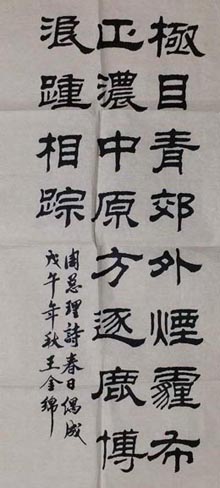 極目青郊外煙霾布
正濃中原方逐鹿博
浪踵相踪
周总理詩春日偶成
戊午年秋王金